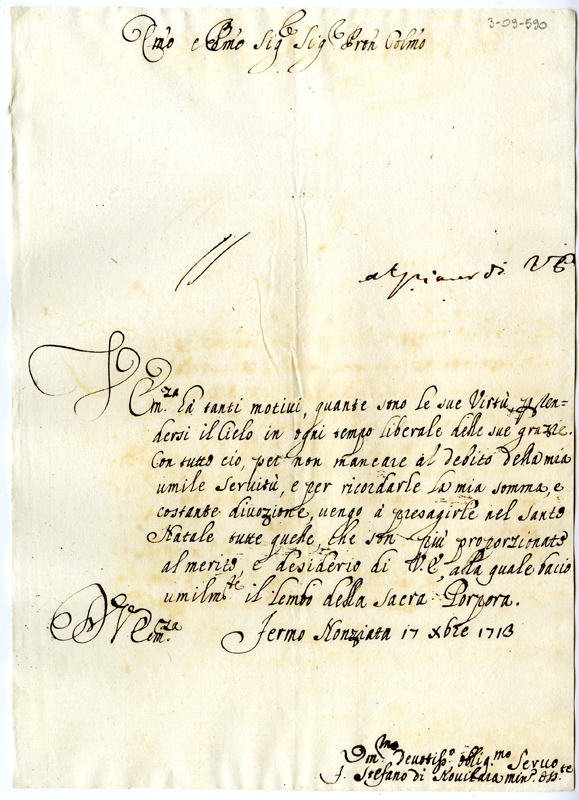 3-09-590
Em̃o e Rm̃o Sig.re Sig.re Pron Colm̃o
V
Em.za hà tanti motivi, quante sono le sue Virtù, p ren-
dersi il Cielo in ogni tempo liberale delle sue grazie.
Con tutto cio, per non mancare al debito della mia
umile servitù, e per ricordarle la mia somma, e
costante divozione, vengo à presagirle nel santo
Natale tutte quelle, che son più proporzionate
al merito, e desiderio di V.E., alla quale bacio
umilm.te il lembo della sacra Porpora.
Di V. Em.za Fermo Nonziata 17 Xbre 1713
devotiss.o oblig.mo Servo
f. Stefano di Novilara min. oss.te